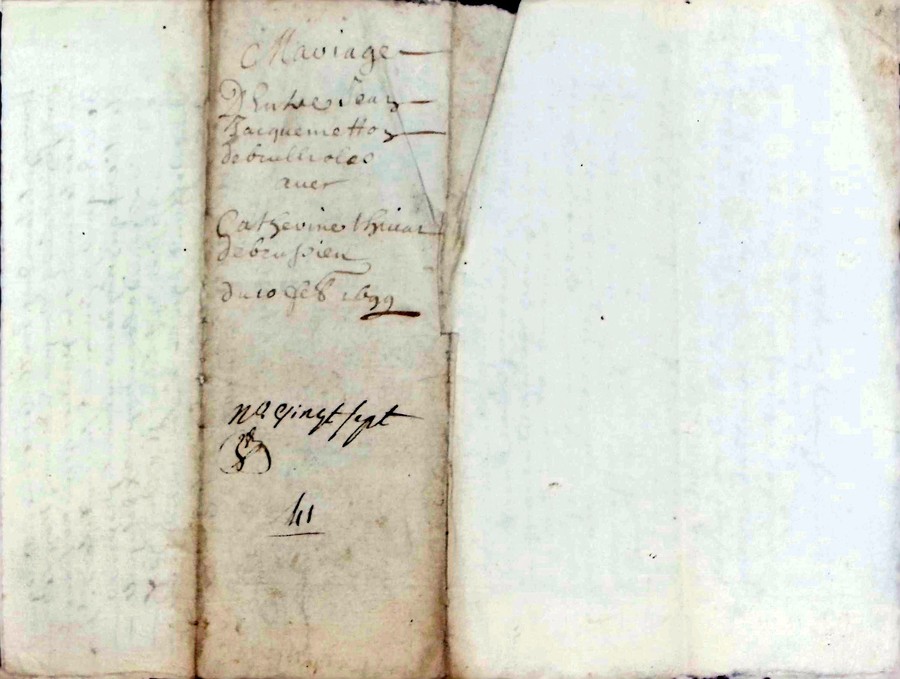 Mariage
D'Entre Jean
Jacquemetton
de brullioles
avec
Catherine
de brussieu
du 10 feb 1699
n° vingt sept
41